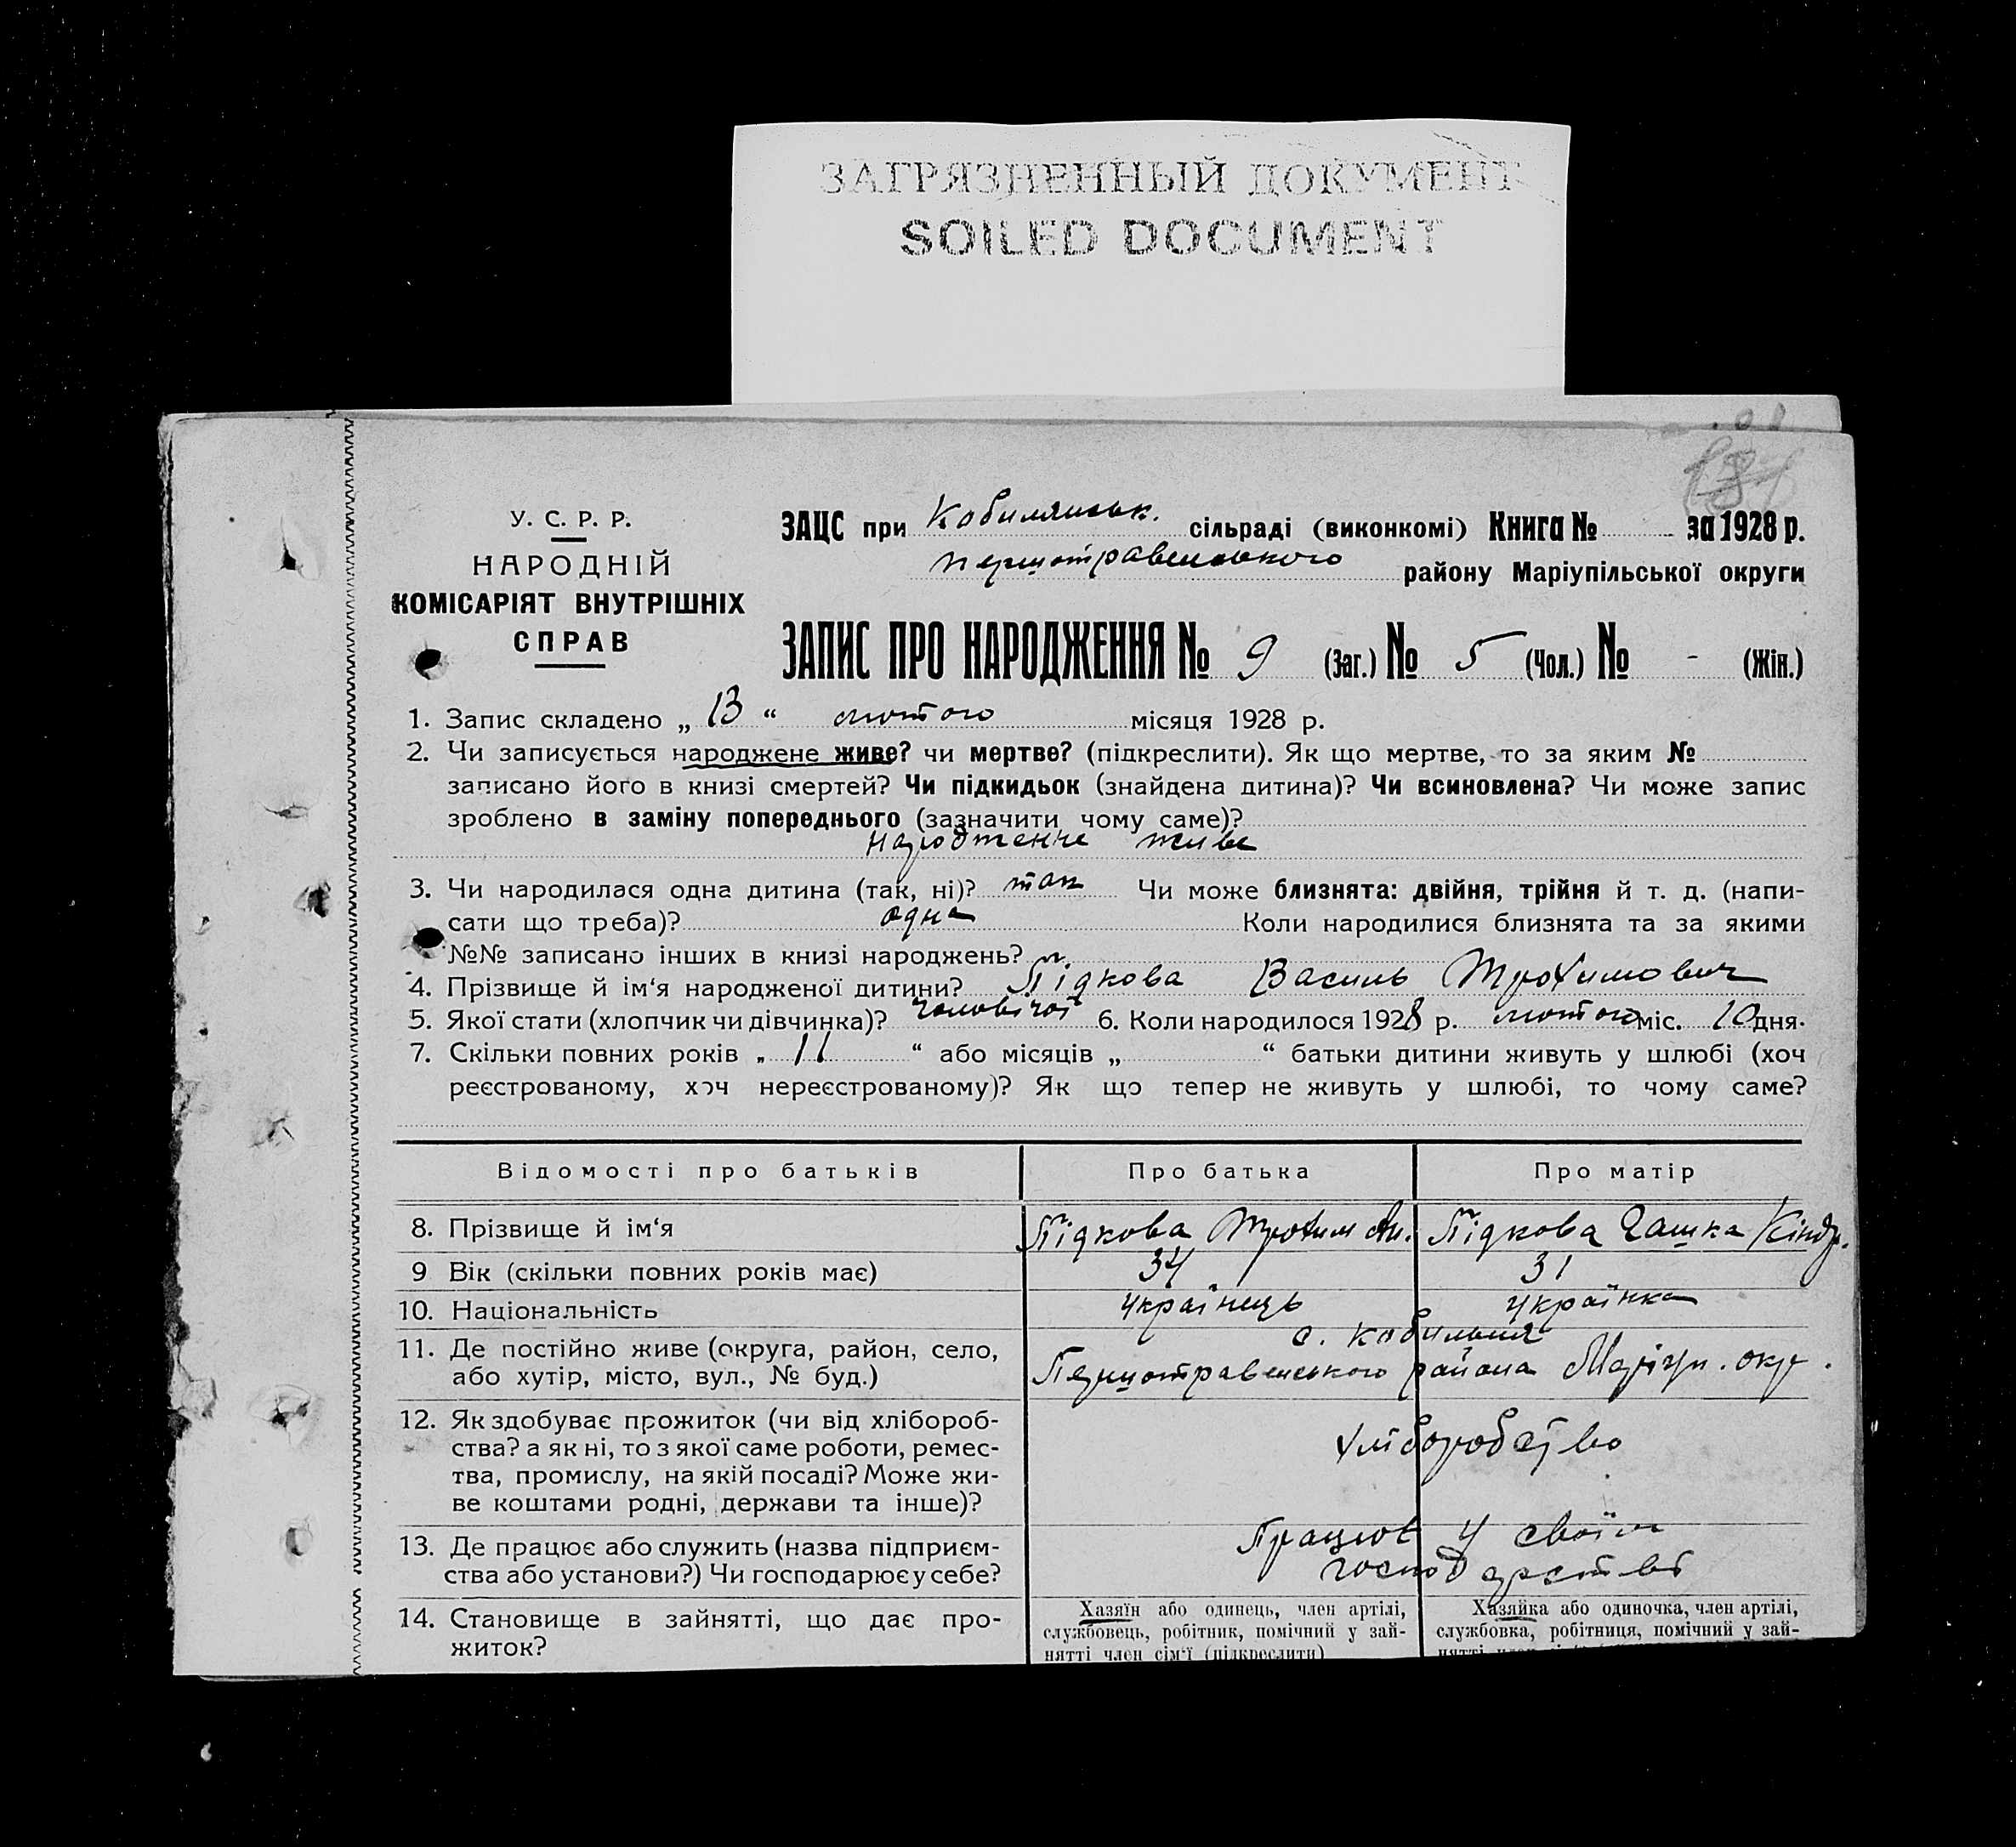 ЗАГРЯЗНЕННЫЙ ДОКУМЕНТ
SOILED DOCUMENT
У. С. Р. Р.
НАРОДНІЙ
КОМІСАРІЯТ ВНУТРІШНІХ
СПРАВ
ЗАЦС при Кобилянськ. сільраді (виконкомі) Книга № за 1928 р.
Першотравенського району Маріупільської округи
ЗАПИС ПРО НАРОДЖЕННЯ № 9 (Заг.) № 5 (Чол.) № - (Жін.)
1. Запис складено „ 13 “ лютого місяця 1928 р.
2. Чи записується народжене живе? чи мертве? (підкреслити). Як що мертве, то за яким №
записано його в книзі смертей? Чи підкидьок (знайдена дитина)? Чи всиновлена? Чи може запис
зроблено в заміну попереднього (зазначити чому саме)?
народження живе
3. Чи народилася одна дитина (так, ні)? так Чи може близнята: двійня, трійня й т. д. (напи-
сати що треба)? одна Коли народилися близнята та за якими
№№ записано інших в книзі народжень?
4. Прізвище й ім‘я народженої дитини? Підкова Василь Трохимович
5. Якої стати (хлопчик чи дівчинка)? чоловічої 6. Коли народилося 1928 р. лютого міс. 10 дня.
7. Скільки повних років „ 11 “ або місяців „ “ батьки дитини живуть у шлюбі (хоч
реєстрованому, хоч нереєстрованому)? Як що тепер не живуть у шлюбі, то чому саме?
Відомості про батьків Про батька Про матір
8. Прізвище й ім‘я Підкова Трохим Ан. Підкова Гашка Кіндр.
9 Вік (скільки повних років має) 34 31
10. Національність Українець Українка
11. Де постійно живе (округа, район, село, с. Кобильня
або хутір, місто, вул., № буд.) Першотравенського района Маріуп. окр.
12. Як здобуває прожиток (чи від хлібороб-
ства? а як ні, то з якої саме роботи, ремес- хліборобство
тва, промислу, на якій посаді? Може жи-
ве коштами родні, держави та інше)?
13. Де працює або служить (назва підприєм- Працює у своїм
ства або установи?) Чи господарює у себе? господарстві
14. Становище в зайнятті, що дає про- Хазяїн або одинець, член артілі, Хазяйка або одиночка, член артілі,
житок? службовець, робітник, помічний у зай- службовка, робітниця, помічний у зай-
нятті член сім‘ї (підкреслити)